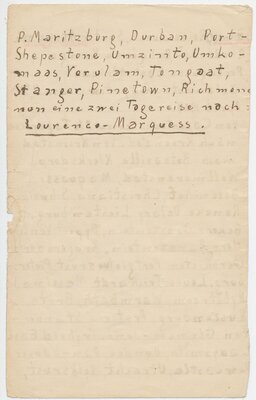 P. Maritzburg, Durban, Port-
Shepestone, Umzinto, Umko-
maas, Verulam, Tongaat,
Stanger, Pinetown, Richmond
nun eine zwei Tagereise nach:
Lourenco-Marquess.